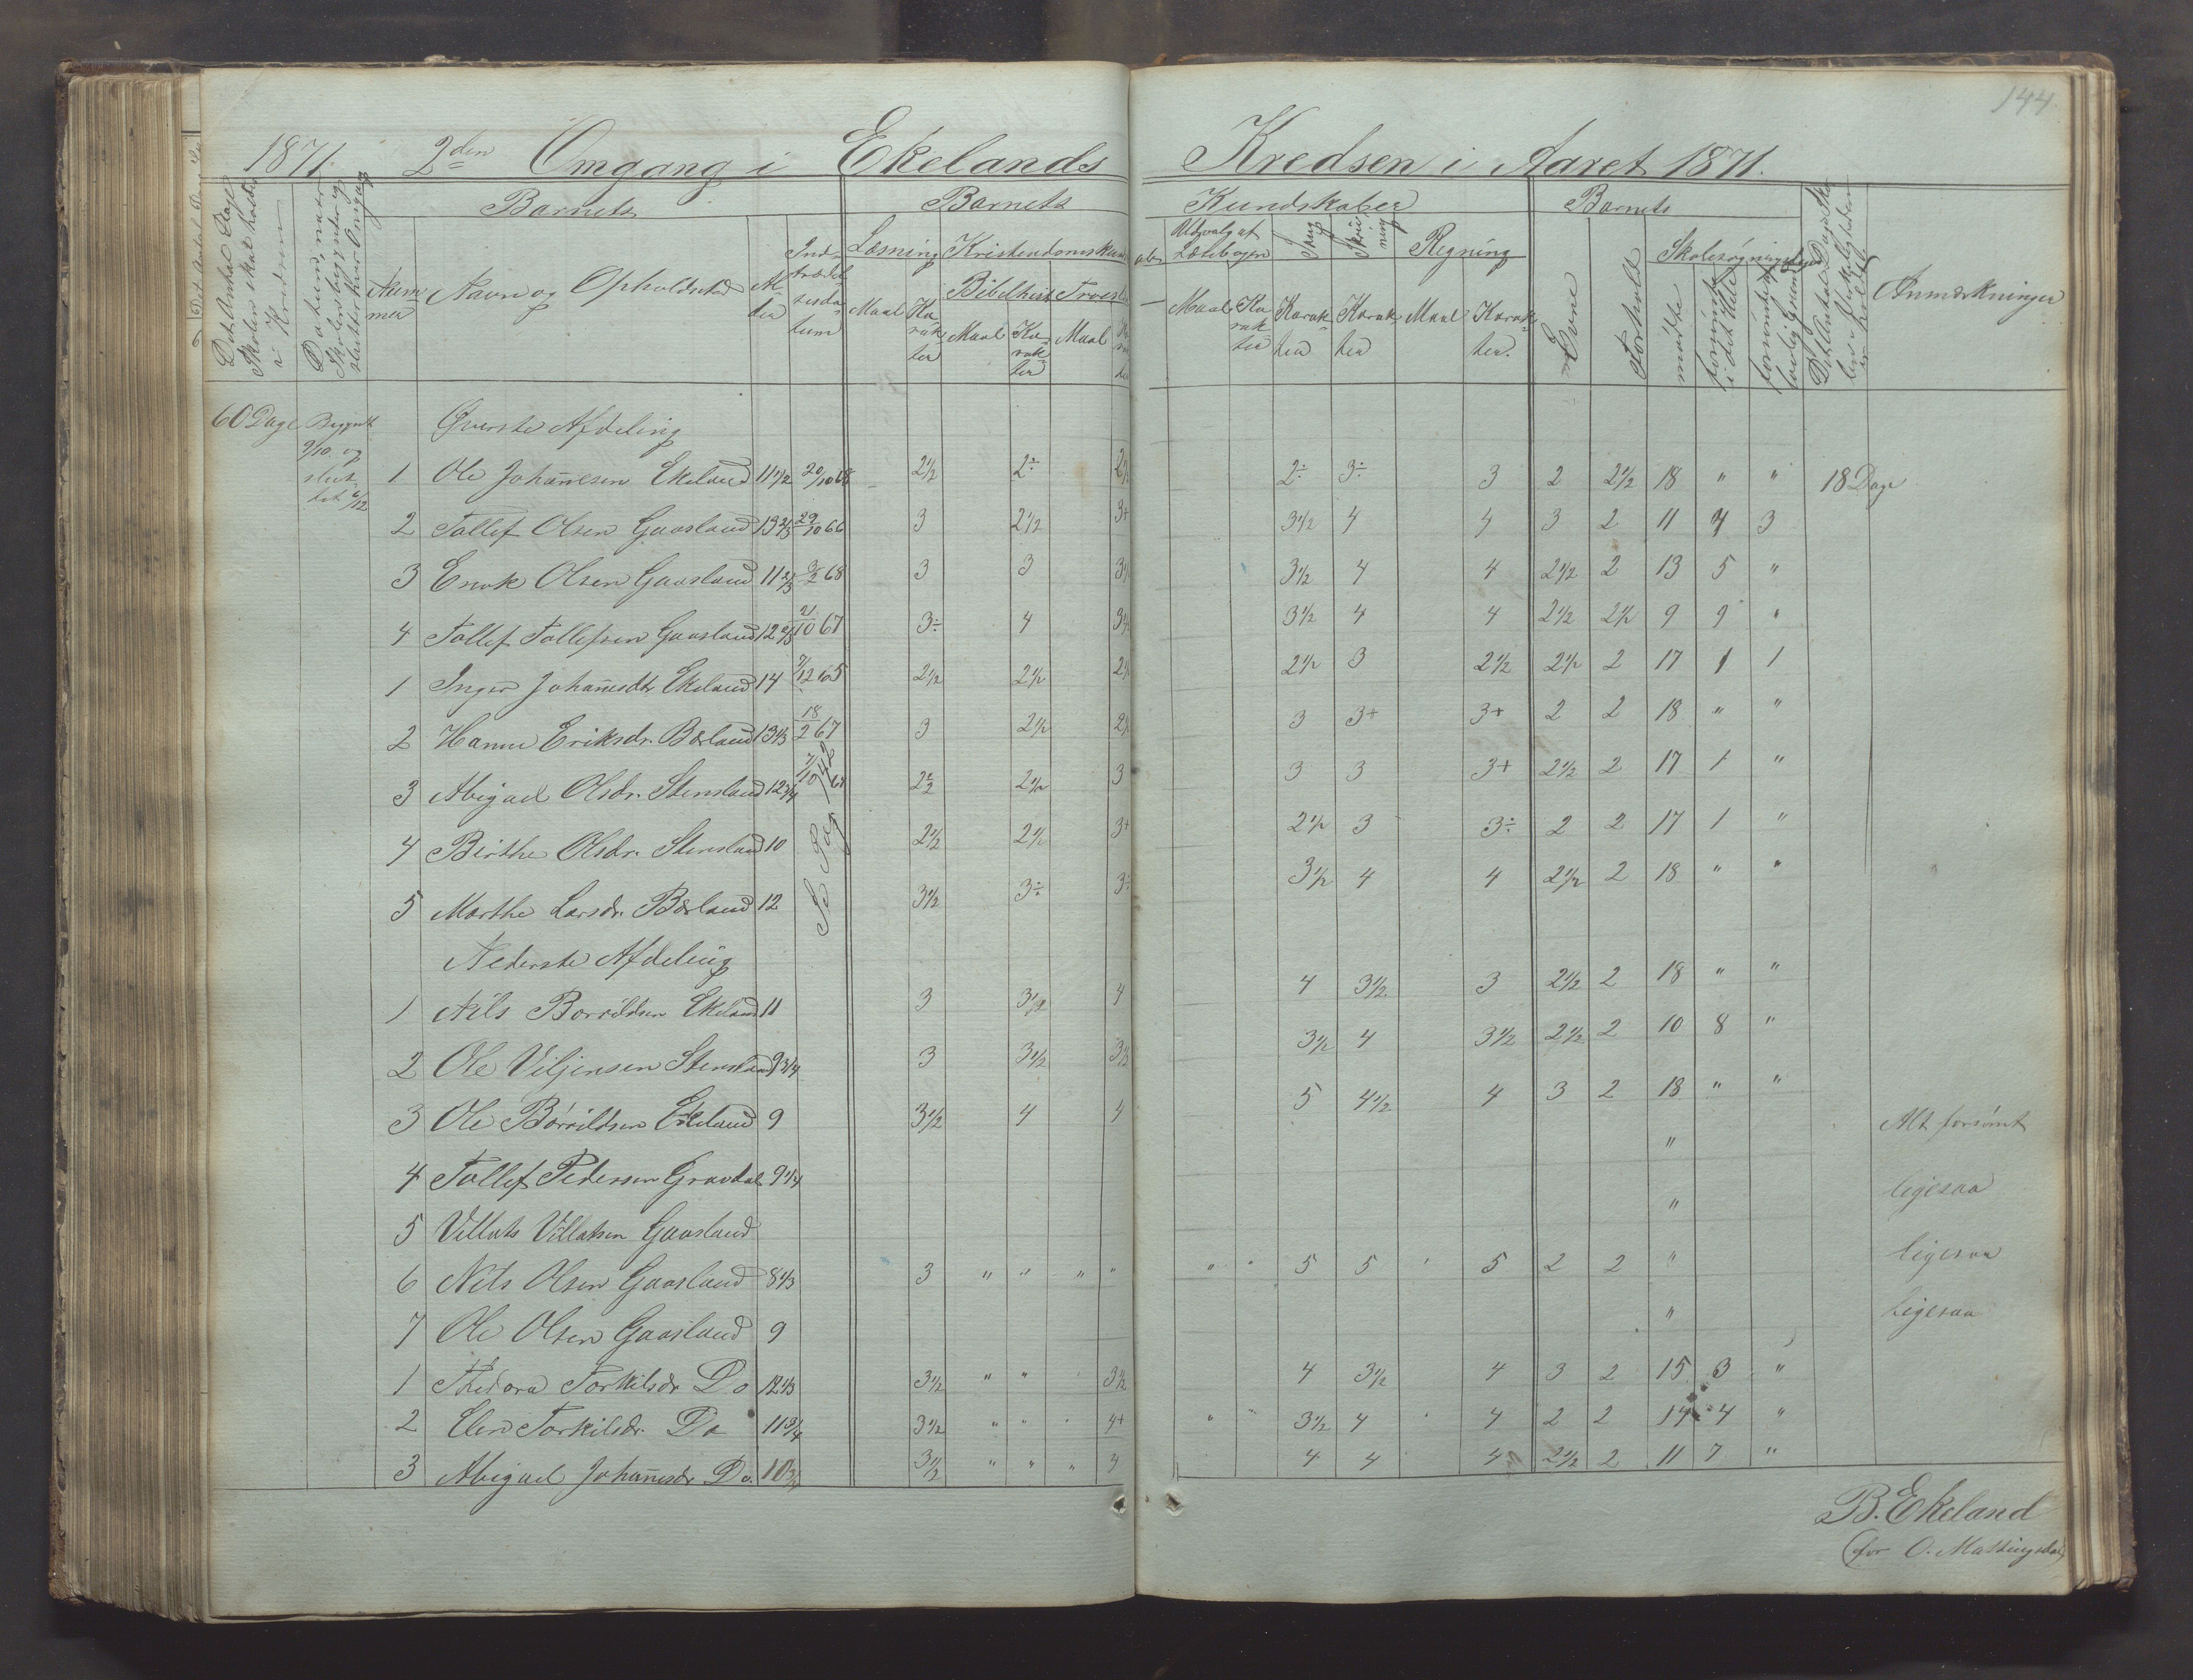 144
1871. 2den Omgang i Ekelands Kredsen i Aaret 1871.
Det Antal Dage Skolen skal holdes i Kredsen
Datum, naar Skolen begynder og slutter hver Omgang
Barnets
Barnets
Kundskaber
Barnets
Nummer
Navn og Opholdssted
Alder
Indtrædelsesdatum
Læsning
Maal
Karakter
Bibelhist
Maal
Karakter
Troesl
Maal
Udvalg af Læsebogen
Maal
Karakter
Sang
Karakter
Skrivning
Karakter
Regning
Maal
Karakter.
Evne
Forhold
mødte
forsømte i det Hele
forsømte af lovlig Grund
Anmærkninger
60 Dage Begyndt 9/10 og sluttet 6/12
Øverste Afdeling
1 Ole Johannesen Ekeland 11 1/2 20/10 68 2 1/2 2÷ 2÷ 3÷ 3 2 2 1/2 18 " " 18 Dage
2 Tollef Olsen Gaasland 13 2/3 29/10 66 3 2 1/2 3+ 3 1/2 4 4 3 2 11 7 3
3 Enok Olsen Gaasland 11 2/3 3/2 68 3 3 3 1/2 4 4 2 1/2 2 13 5 "
4 Tollef Tollefsen Gaasland 12 2/3 21/10 67 3÷ 4 3 1/2 4 4 2 1/2 2 1/2 9 9 "
1 Inger Johannesdtr Ekeland 14 7/12 65 2 1/2 2 1/2 2 1/2 3 2 1/2 2 1/2 2 17 1 1
2 Hanne Eriksdr. Børland 13 1/3 18/2 67 3 2 1/2 3 3+ 3+ 2 2 18 " "
3 Abigael Olsdr. Stensland 12 3/4 2 1/2 2 1/2 3 3 3 3+ 2 1/2 2 17 1 "
4 Birthe Olsdr. Stensland 10 2 1/2 2 1/2 3+ 2 1/2 3 3÷ 2 2 17 1 "
5 Marthe Larsdr. Børland 12 3 1/2 3÷ 3÷ 3 1/2 4 4 2 1/2 2 18 " "
Se Pag 42
Nederste Afdeling
1 Nils Borrildsen Ekeland 11 3 3 1/2 4 4 3 1/2 3 2 1/2 2 18 " "
2 Ole Viljensen Stensland 9 3/4 3 3 1/2 3 1/2 3 1/2 4 3 1/2 2 1/2 2 10 8 "
3 Ole Börrildsen Ekeland 9 3 1/2 4 4 5 4 1/2 4 3 2 18 " "
4 Tollef Pedersen Gravdal 9 1/4 " Alt forsömt
5 Villats Villatsen Gaasland " ligesaa
6 Nils Olsen Gaasland 8 1/3 3 " " " " " " 5 5 5 2 2 " ligesaa
7 Ole Olsen Gaasland 9 " ligesaa
1 Thedora Torkilsdr Do 12 1/3 3 1/2 " " 3 1/2 4 3 1/2 4 3 2 15 3 "
2 Elen Torkilsdr. Do 11 3/4 3 1/2 " " 4+ " " 3 1/2 4 4 2 2 14 4 "
3 Abigael Johannesdr Do. 10 3/4 3 1/2 " " " 4 4 4 4 2 1/2 2 11 7 "
B. Ekeland
(for O. Mattingsdal)